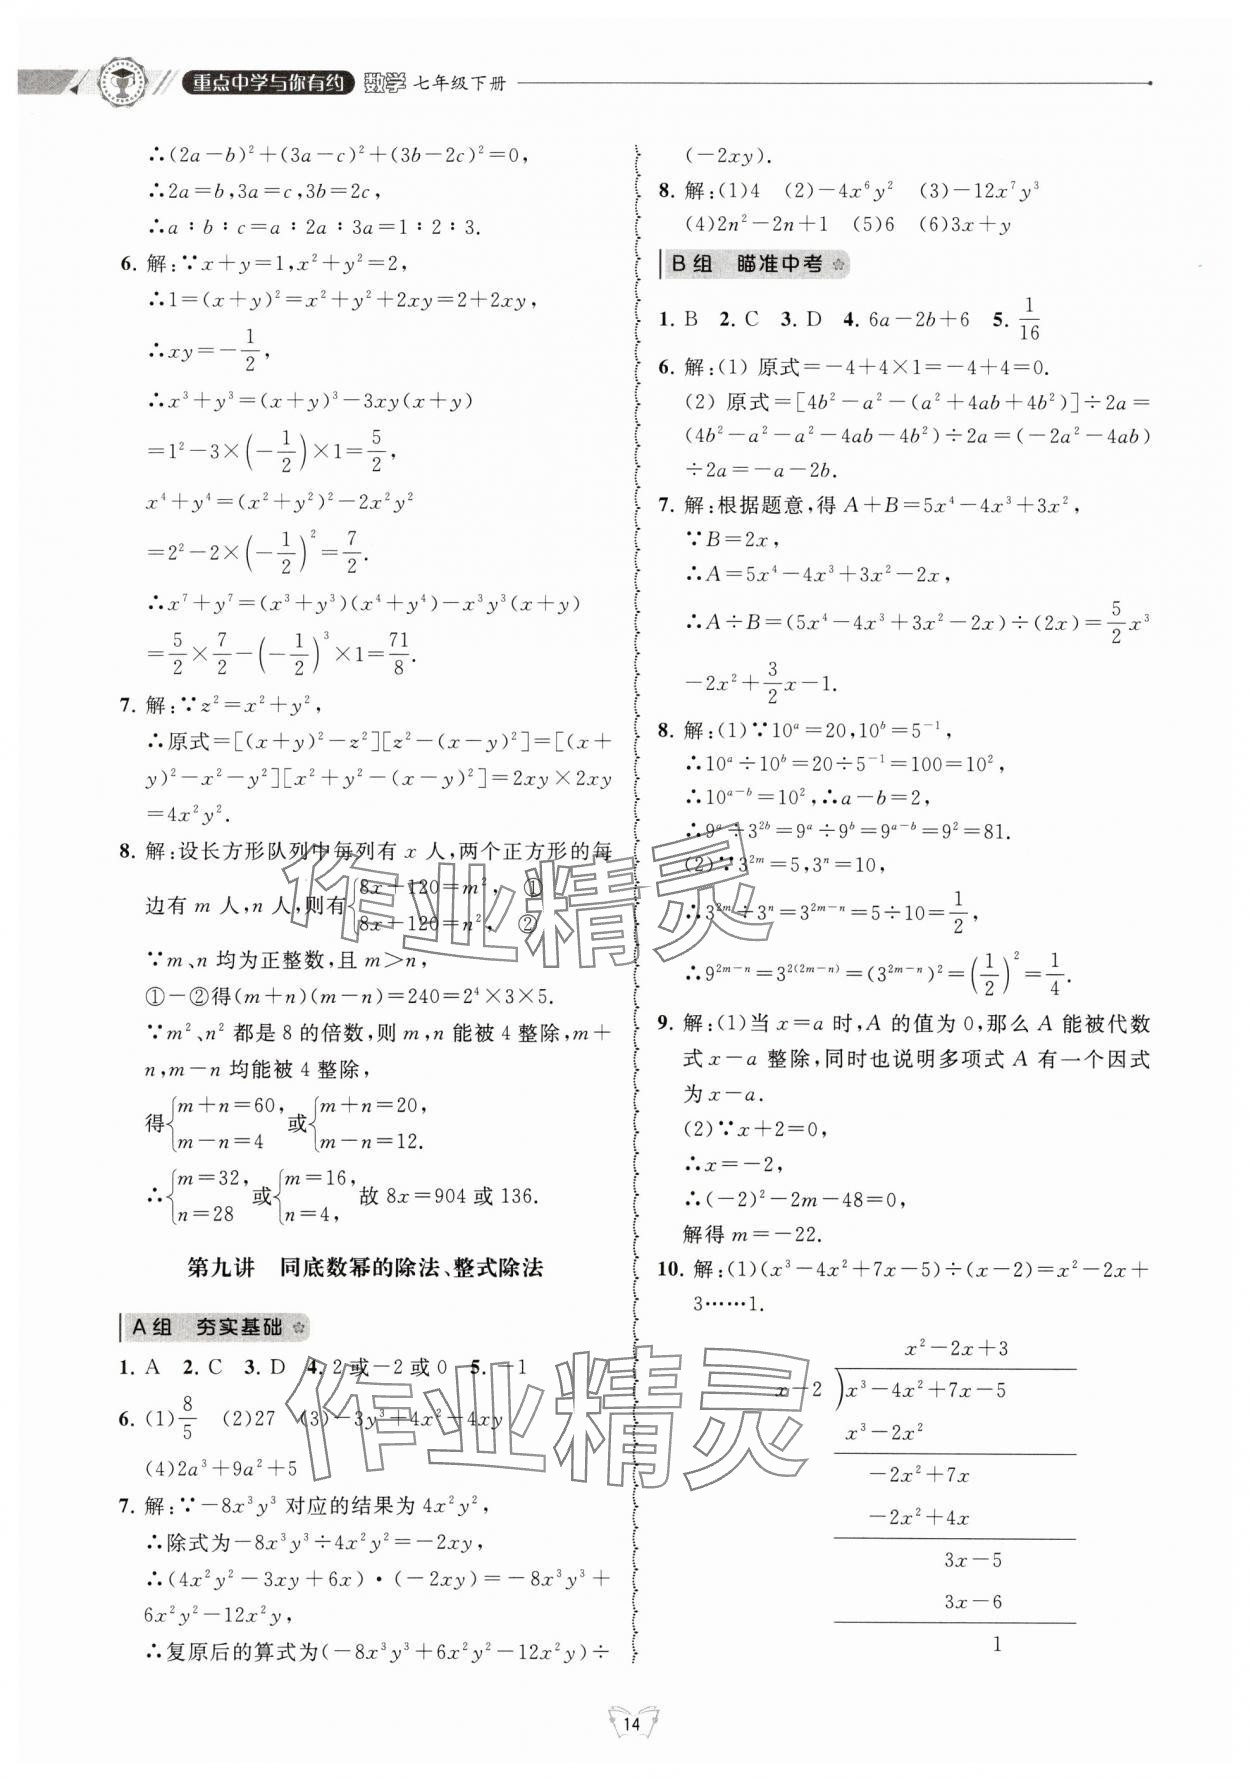 重点中学与你有约 数学 七年级下册
∴(2a-b)²+(3a-c)²+(3b-2c)²=0,
∴2a=b,3a=c,3b=2c,
∴a∶b∶c=a∶2a∶3a=1∶2∶3.
6. 解:∵x+y=1,x²+y²=2,
∴1=(x+y)²=x²+y²+2xy=2+2xy,
∴xy=-1/2,
∴x³+y³=(x+y)³-3xy(x+y)
=1²-3×(-1/2)×1=5/2,
x⁴+y⁴=(x²+y²)²-2x²y²
=2²-2×(-1/2)²=7/2.
∴x⁷+y⁷=(x³+y³)(x⁴+y⁴)-x³y³(x+y)
=5/2×7/2-(-1/2)³×1=71/8.
7. 解:∵z²=x²+y²,
∴原式=[(x+y)²-z²][z²-(x-y)²]=[(x+
y)²-x²-y²][x²+y²-(x-y)²]=2xy×2xy
=4x²y².
8. 解:设长方形队列中每列有 x 人,两个正方形的每
边有 m 人,n 人,则有{8x+120=m², ①
8x-120=n², ②
∵m、n 均为正整数,且 m>n,
①-②得(m+n)(m-n)=240=2⁴×3×5.
∵m²、n² 都是 8 的倍数,则 m,n 能被 4 整除,m+
n,m-n 均能被 4 整除,
得{m+n=60, m-n=4 或{m+n=20, m-n=12.
∴{m=32, n=28 或{m=16, n=4, 故 8x=904 或 136.
第九讲 同底数幂的除法、整式除法
A 组 夯实基础
1. A 2. C 3. D 4. 2 或-2 或 0 5. -1
6. (1)8/5 (2)27 (3)-3y³+4x²-4xy
(4)2a³+9a²+5
7. 解:∵-8x³y³ 对应的结果为 4x²y²,
∴除式为-8x³y³÷4x²y²=-2xy,
∴(4x²y²-3xy+6x)·(-2xy)=-8x³y³+
6x²y²-12x²y,
∴复原后的算式为(-8x³y³+6x²y²-12x²y)÷
(-2xy).
8. 解:(1)4 (2)-4x⁶y² (3)-12x⁷y³
(4)2n²-2n+1 (5)6 (6)3x+y
B 组 瞄准中考
1. B 2. C 3. D 4. 6a-2b+6 5. 1/16
6. 解:(1) 原式=-4+4×1=-4+4=0.
(2) 原式=[4b²-a²-(a²+4ab+4b²)]÷2a=
(4b²-a²-a²-4ab-4b²)÷2a=(-2a²-4ab)
÷2a=-a-2b.
7. 解:根据题意,得 A+B=5x⁴-4x³+3x²,
∵B=2x,
∴A=5x⁴-4x³+3x²-2x,
∴A÷B=(5x⁴-4x³+3x²-2x)÷(2x)=5/2x³
-2x²+3/2x-1.
8. 解:(1)∵10ᵃ=20,10ᵇ=5⁻¹,
∴10ᵃ÷10ᵇ=20÷5⁻¹=100=10²,
∴10ᵃ⁻ᵇ=10²,∴a-b=2,
∴9ᵃ÷3²ᵇ=9ᵃ÷9ᵇ=9ᵃ⁻ᵇ=9²=81.
(2)∵3²ᵐ=5,3ⁿ=10,
∴3²ᵐ÷3ⁿ=3²ᵐ⁻ⁿ=5÷10=1/2,
∴9²ᵐ⁻ⁿ=3²⁽²ᵐ⁻ⁿ⁾=(3²ᵐ⁻ⁿ)²=(1/2)²=1/4.
9. 解:(1)当 x=a 时,A 的值为 0,那么 A 能被代数
式 x-a 整除,同时也说明多项式 A 有一个因式
为 x-a.
(2)∵x+2=0,
∴x=-2,
∴(-2)²-2m-48=0,
解得 m=-22.
10. 解:(1)(x³-4x²+7x-5)÷(x-2)=x²-2x+
3……1.
x²-2x+3
x-2)x³-4x²+7x-5
x³-2x²
-2x²+7x
-2x²+4x
3x-5
3x-6
1
14
作业精灵
作业精灵